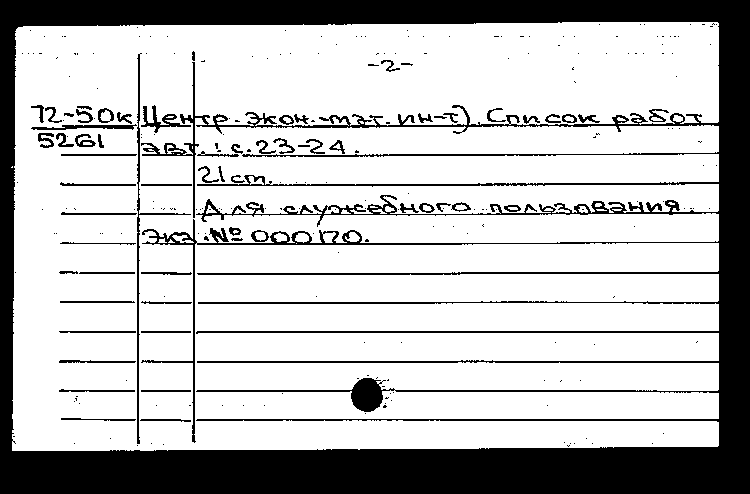 -2-
72-50к Центр. экон.-мат. ин-т). Список работ
5261 авт.: с.23-24.
21 см.
Для служебного пользования.
Экз. № 000170.